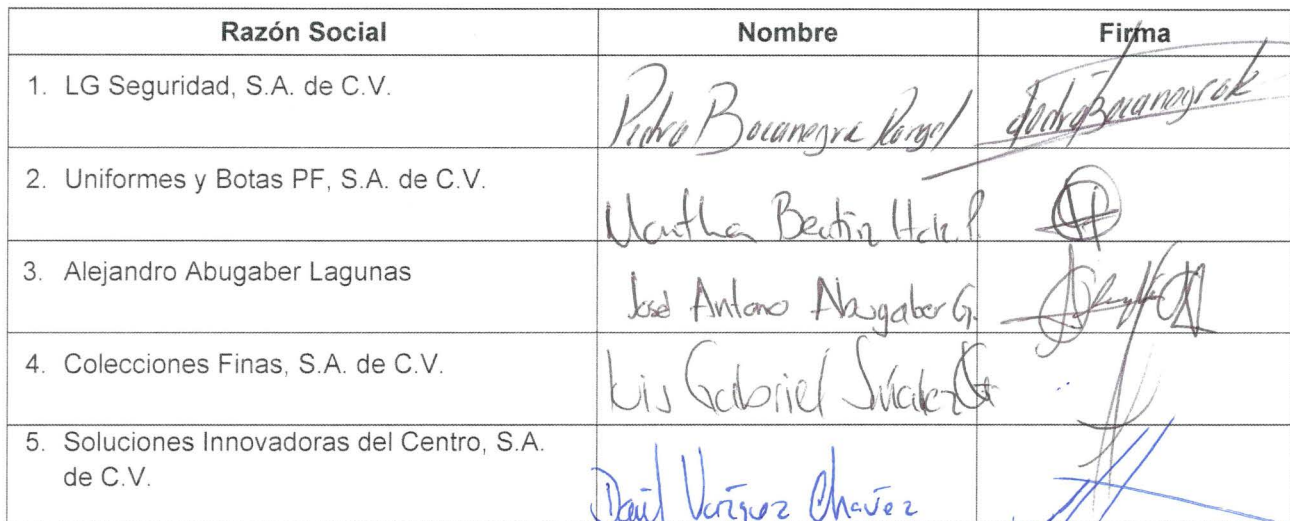 Razón Social Nombre Firma
1. LG Seguridad, S.A. de C.V. Pedro Bocanegra Rangel
2. Uniformes y Botas PF, S.A. de C.V. Martha Beatriz Hdz. P.
3. Alejandro Abugaber Lagunas José Antono Abugaber G.
4. Colecciones Finas, S.A. de C.V. Luis Gabriel
5. Soluciones Innovadoras del Centro, S.A.
de C.V. Vázquez Chavez